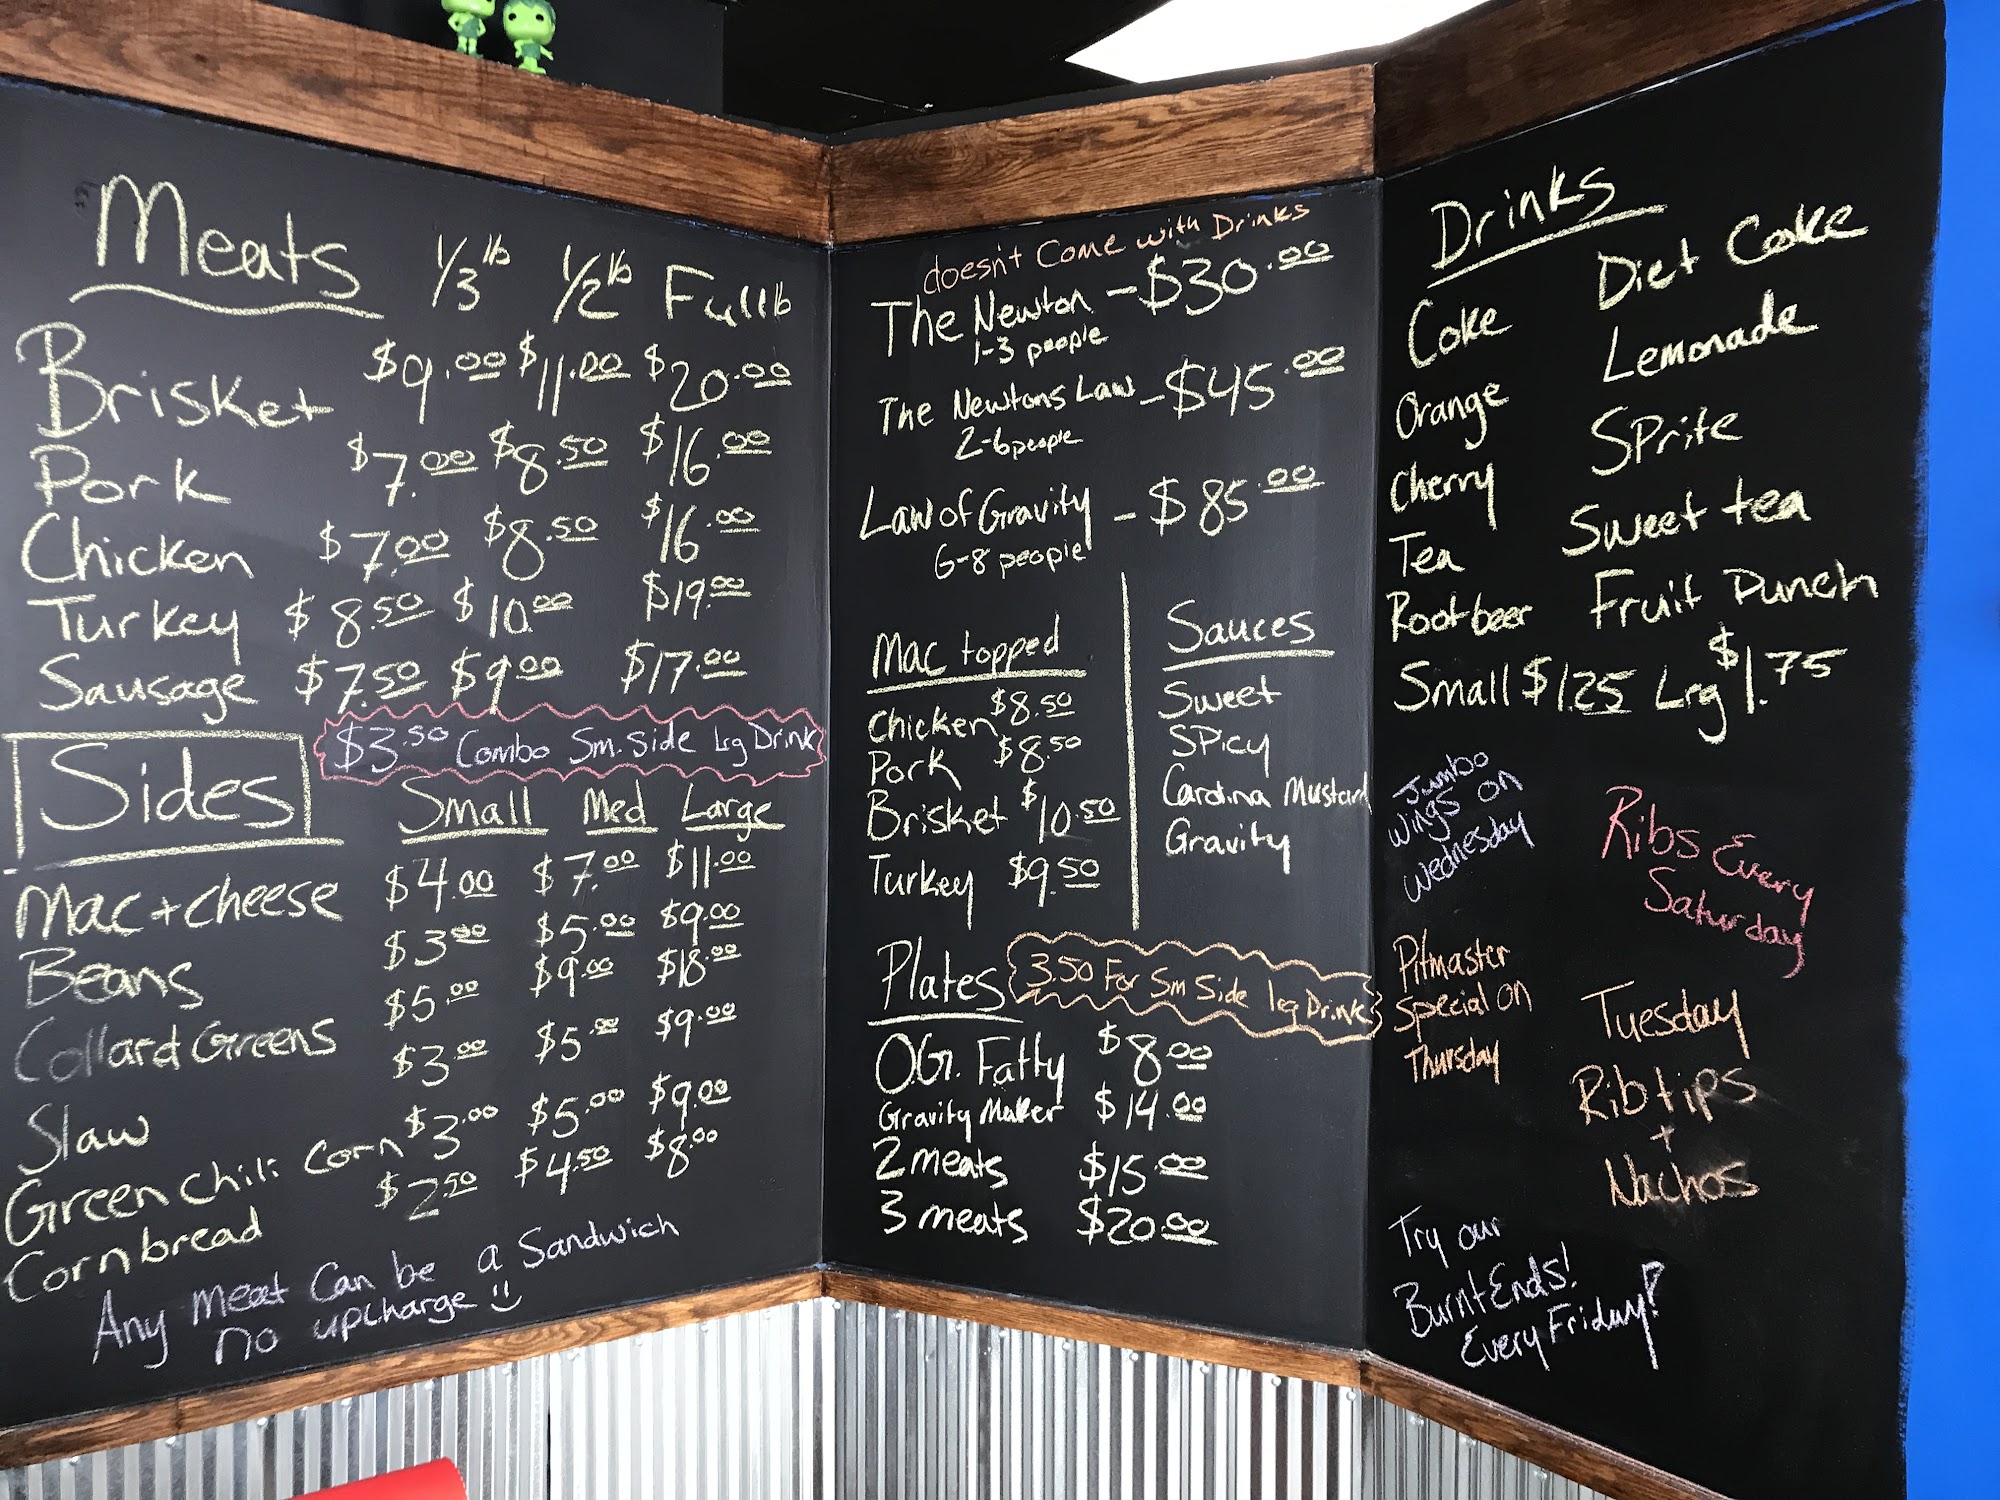 Meats 1/3 lb 1/2 lb Full lb
Brisket $9.00 $11.00 $20.00
Pork $7.00 $8.50 $16.00
Chicken $7.00 $8.50 $16.00
Turkey $8.50 $10.00 $19.00
Sausage $7.50 $9.00 $17.00
$3.50 Combo Sm. Side Lrg Drink
Sides Small Med Large
Mac + cheese $4.00 $7.00 $11.00
Beans $3.00 $5.00 $9.00
Collard Greens $5.00 $9.00 $18.00
Slaw $3.00 $5.00 $9.00
Green chili corn $3.00 $5.00 $9.00
Cornbread $2.50 $4.50 $8.00
Any meat can be a Sandwich
no upcharge
doesn't Come with Drinks
The Newton - $30.00
1-3 people
The Newtons Law - $45.00
2-6 people
Law of Gravity - $85.00
6-8 people
Mac topped
Chicken $8.50
Pork $8.50
Brisket $10.50
Turkey $9.50
Sauces
Sweet
SPicy
Carolina Mustard
Gravity
Plates
3.50 For Sm Side lrg Drink
O.G. Fatty $8.00
Gravity Maker $14.00
2 meats $15.00
3 meats $20.00
Drinks
Coke Diet Coke
Orange Lemonade
Cherry SPrite
Tea Sweet tea
Rootbeer Fruit Punch
Small $1.25 Lrg $1.75
Jumbo
Wings on
Wednesday
Ribs Every
Saturday
Pitmaster
Special on
Thursday
Tuesday
Rib tips
+
Nachos
Try our
Burnt Ends!
Every Friday!